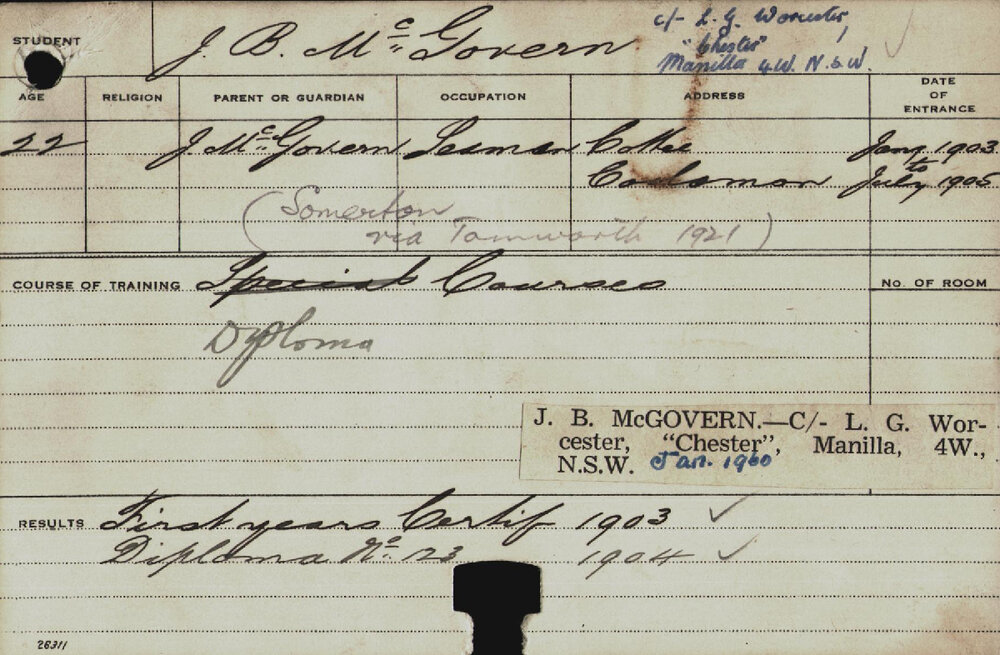 STUDENT J. B. McGovern
c/- L. G. Worcester,
"Chester"
Manilla 4W. N.S.W.
AGE RELIGION PARENT OR GUARDIAN OCCUPATION ADDRESS DATE OF ENTRANCE
22 J. McGovern Seaman Jany 1903
to
July 1905
(Somerton
via Tamworth 1921)
COURSE OF TRAINING Special Courses
No. OF ROOM
Diploma
J. B. McGOVERN.—C/- L. G. Wor-
cester, "Chester", Manilla, 4W.,
N.S.W. Jan. 1960
RESULTS First years Certif 1903
Diploma No. 23 1904
26311